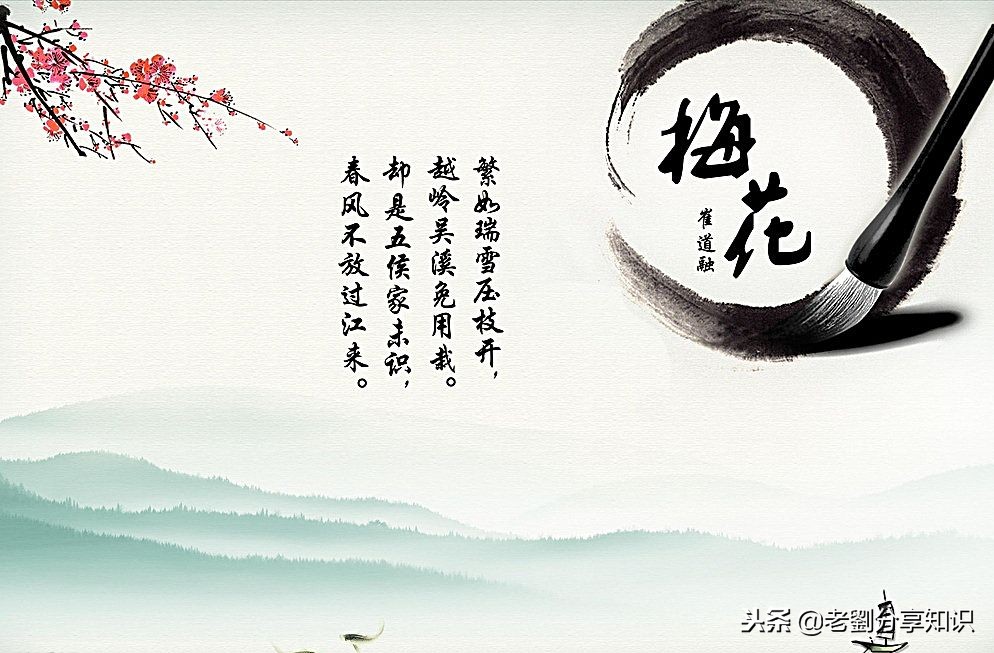 梅花
崔道融
繁如瑞雪压枝开，
越岭吴溪免用栽。
却是五侯家未识，
春风不放过江来。
头条 @老劉分享知识